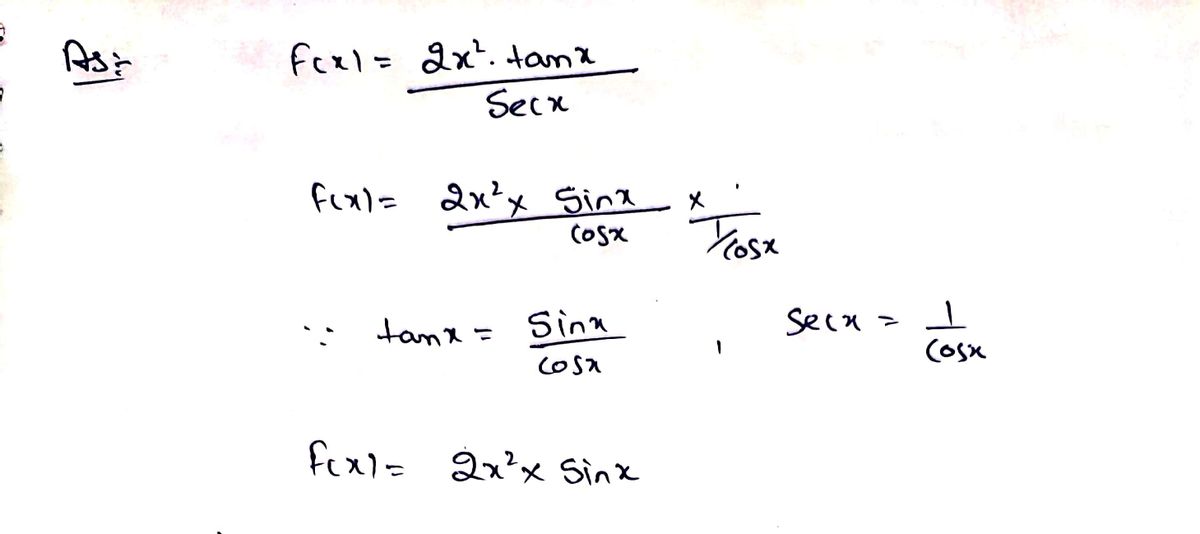 As:-
f(x) = 2x². tanx / Secx
f(x) = 2x² x Sinx / Cosx x 1 / 1/Cosx
∵ tanx = Sinx / Cosx , Secx = 1 / Cosx
f(x) = 2x² x Sinx